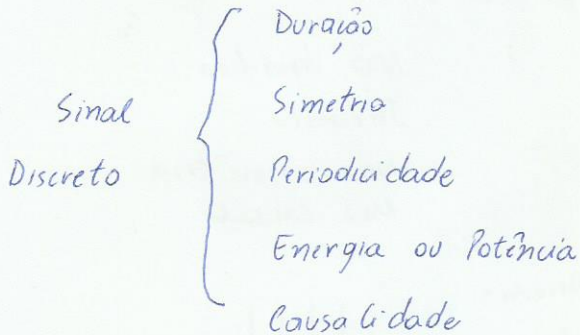 Sinal
Discreto
Duração
Simetria
Periodicidade
Energia ou Potência
Causalidade